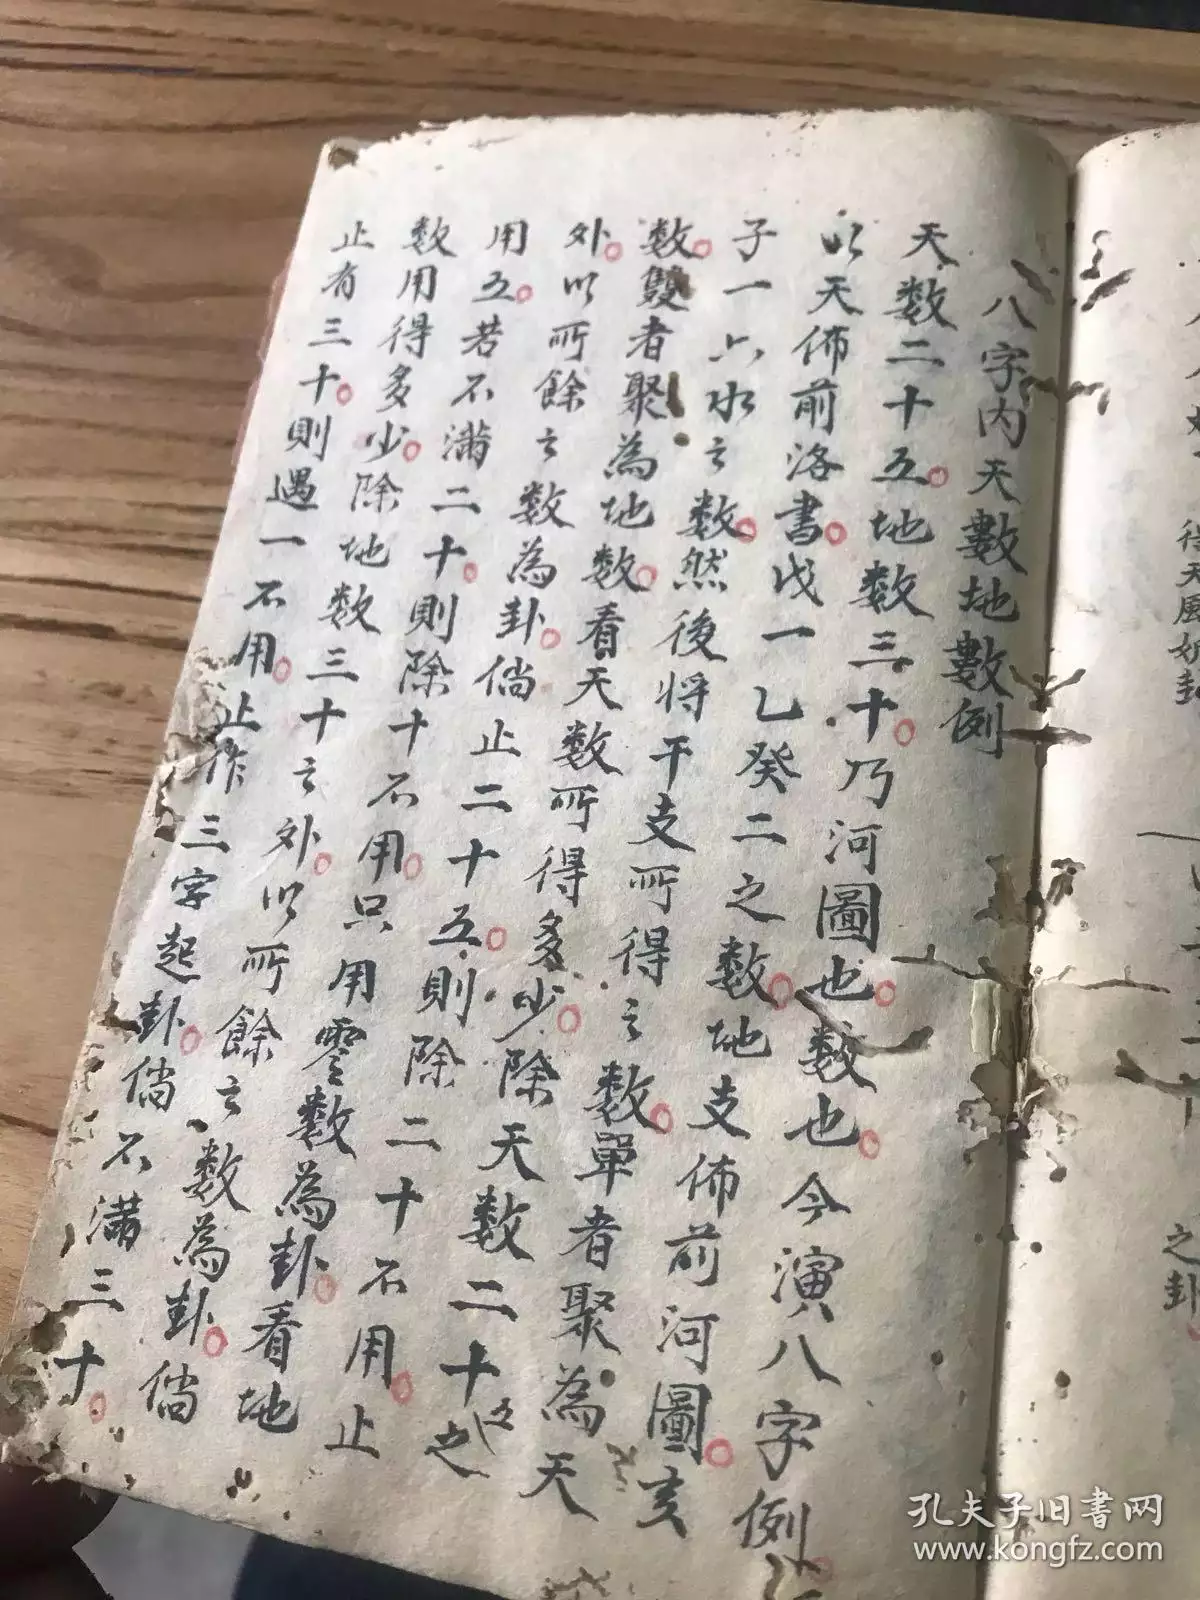 八字内天數地數例
天数二十五。地数三十。乃河圖也。数也。今演八字例。
以天佈前洛書。戊一乙癸二之数。地支佈前河圖。亥
子一六水之数。然後将干支所得之数。單者聚為天
数。雙者聚為地数。看天数所得多少。除天数二十五之
外。以所餘之数為卦。倘止二十五。則除二十不用。止
用五。若不满二十。則除十不用。只用零数為卦。看地
数用得多少。除地数三十之外。以所餘之数為卦。倘
止有三十。則遇一不用。止作三字起卦。倘不满三十。
待天風姤卦
之卦
孔夫子旧書网
www.kongfz.com